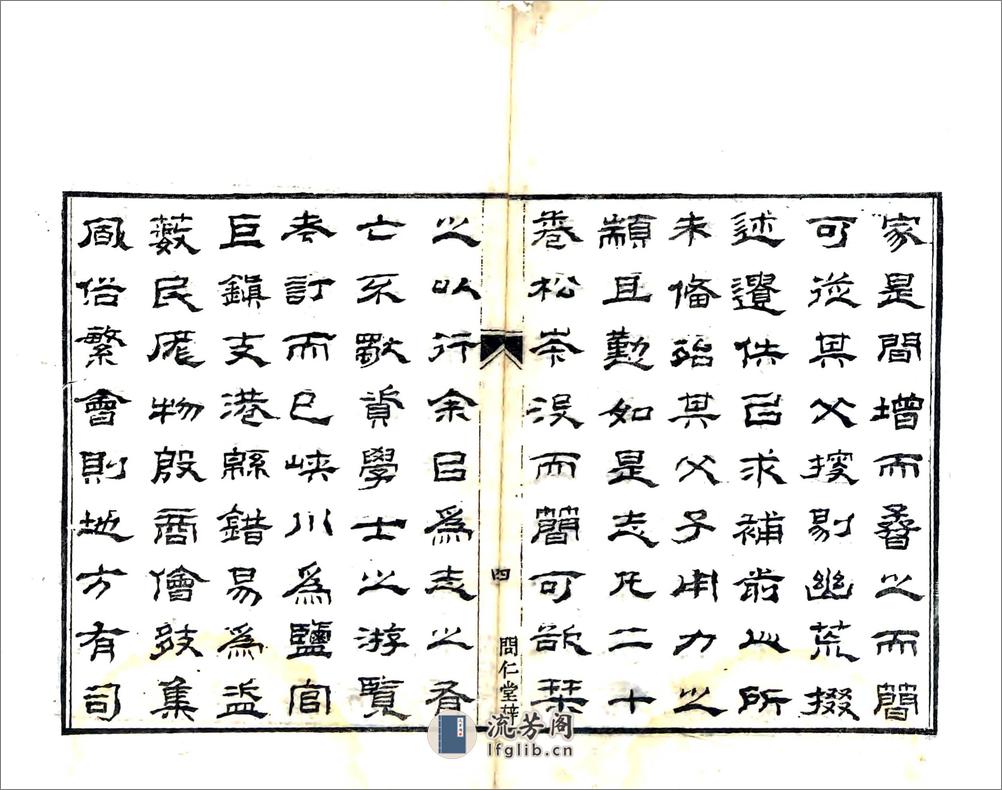 家是間增而之而簡
可從其父搜剔幽荒掇
述遺佚㠯求補前此所
未備殆其父子用力之
顓且勤如是志凡二十
卷松岑沒而簡可欲栞
之以行余㠯為志之存
亡不資學士之游覽
考訂而已峽川為鹽官
巨鎮支港緜錯易為盜
藪民庬物殷商儈歧集
風俗繁會則地方有司
四
問仁堂薛
流芳阁
lfglib.cn